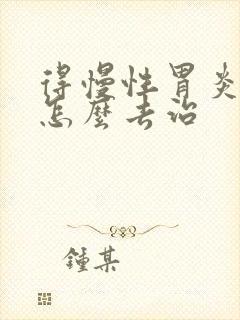 得慢性胃炎
怎麼去治
鍾某